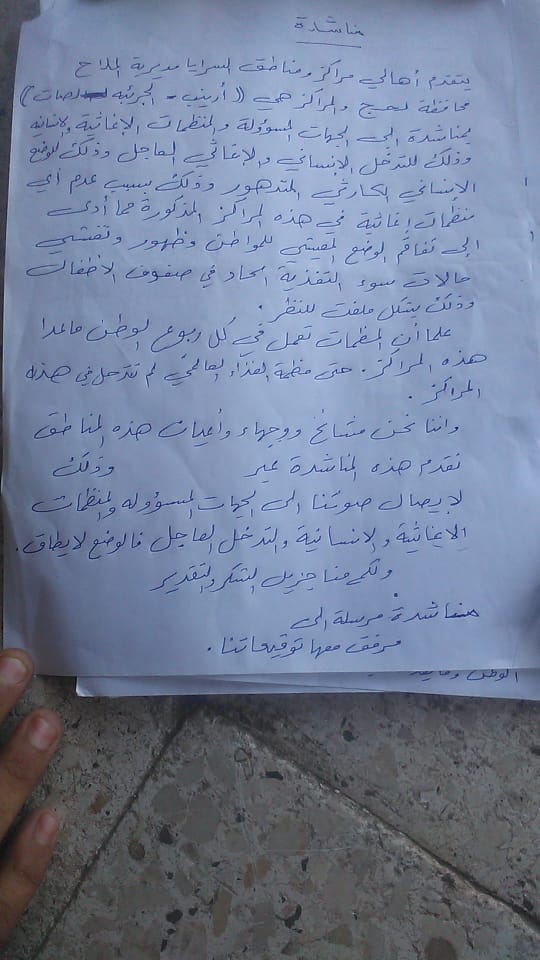 مناشدة
يتقدم أهالي مراكز ومناطق السرايا مديرية الملاح
محافظة لحج والمراكز هي (( أرينب - الجرثبه لصات ))
بمناشدة الى الجهات المسؤولة والمنظمات الإغاثية والإنسانية
وذلك للتدخل الإنساني والإغاثي العاجل وذلك للوضع
الإنساني الكارثي المتدهور وذلك بسبب عدم أي
منظمات إغاثية في هذه المراكز المذكورة مما أدى
إلى تفاقم الوضع المعيشي للمواطن وظهور وتفشي
حالات سوء التغذية الحاد في صفوف الأطفال
وذلك بشكل ملفت للنظر .
علماً أن المنظمات تعمل في كل ربوع الوطن ماعدا
هذه المراكز . حتى منظمة الغذاء العالمي لم تتدخل في هذه
المراكز .
واننا نحن مشائخ ووجهاء وأعيان هذه المناطق
نقدم هذه المناشدة عبر وذلك
لإيصال صوتنا الى الجهات المسؤوله والمنظمات
الإغاثية والإنسانية والتدخل العاجل فالوضع لايطاق .
ولكم منا جزيل الشكر والتقدير
مناشدة مرسلة الى
مرفق معها توقيعاتنا .
الوطن